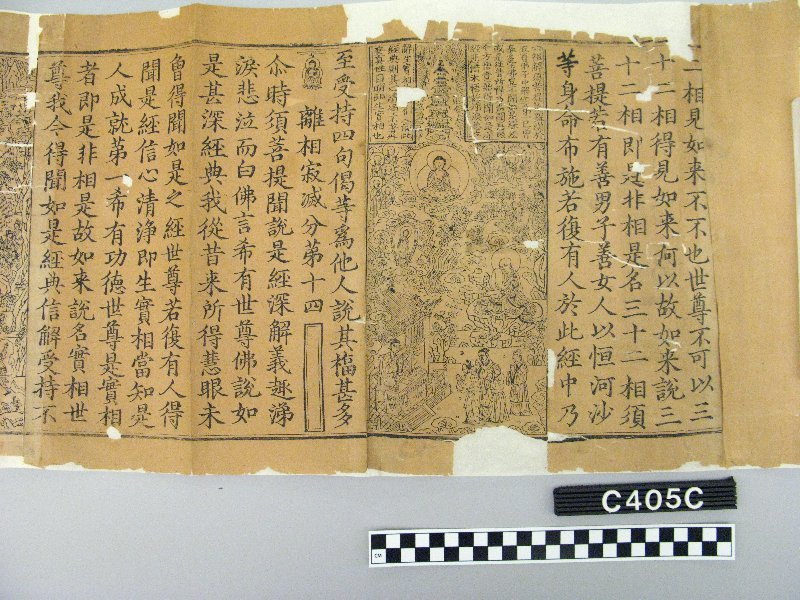 二相見如来不不也世尊不可以三
十二相得見如来何以故如来說三
十二相即是非相是名三十二相須
菩提若有善男子善女人以恒河沙
等身命布施若復有人於此經中乃
至受持四句偈等爲他人說其福甚多
離相寂滅分第十四
尒時須菩提聞說是經深解義趣涕
淚悲泣而白佛言希有世尊佛說如
是甚深經典我從昔来所得慧眼未
曾得聞如是之經世尊若復有人得
聞是經信心清淨即生實相當知是
人成就第一希有功德世尊是實相
者即是非相是故如来說名實相世
尊我今得聞如是經典信解受持不
C405C
CM